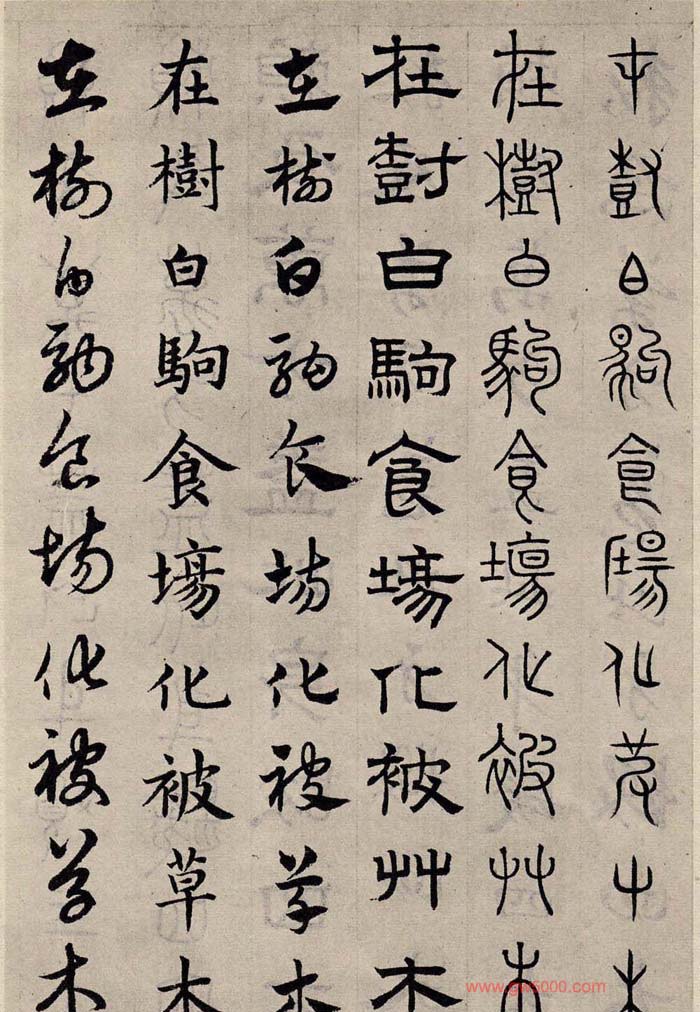 在樹白駒食場化被草木
在樹白駒食場化被草木
在樹白駒食場化被草木
在樹白駒食場化被草木
在樹白駒食場化被草木
在樹白駒食場化被草木
www.gw5000.com